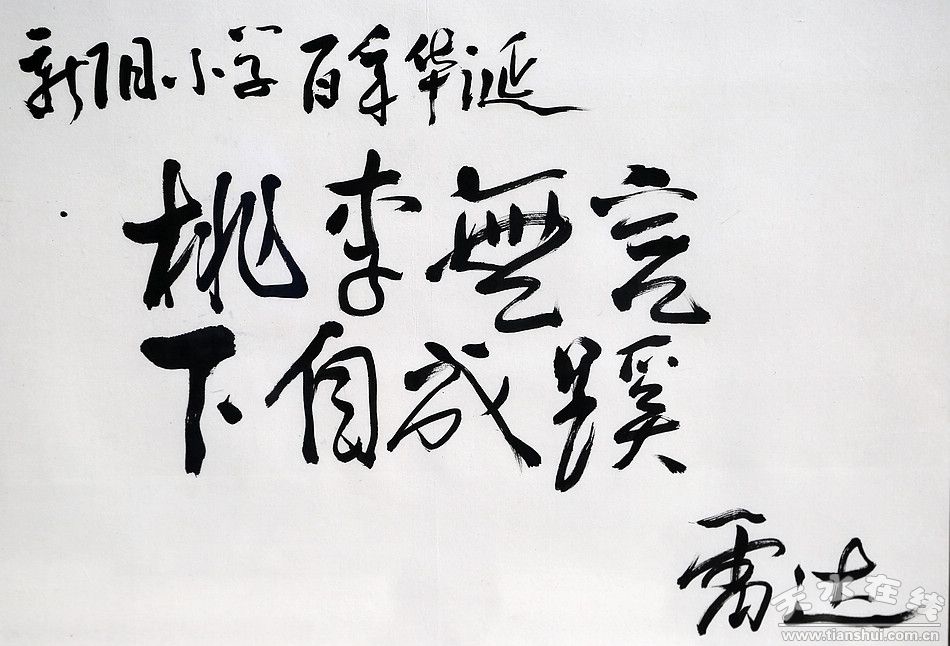 新阳小学百年华诞
桃李無言
下自成蹊
雷达
天水在线
www.tianshui.com.cn